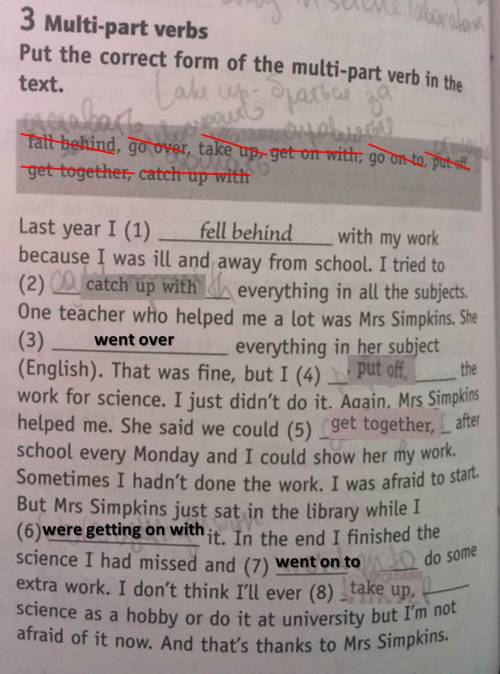 3 Multi-part verbs
Put the correct form of the multi-part verb in the
text.
take up -
fall behind, go over, take up, get on with, go on to, put off,
get together, catch up with
Last year I (1) fell behind with my work
because I was ill and away from school. I tried to
(2) catch up with everything in all the subjects.
One teacher who helped me a lot was Mrs Simpkins. She
(3) went over everything in her subject
(English). That was fine, but I (4) put off, the
work for science. I just didn't do it. Again, Mrs Simpkins
helped me. She said we could (5) get together, after
school every Monday and I could show her my work.
Sometimes I hadn't done the work. I was afraid to start.
But Mrs Simpkins just sat in the library while I
(6) were getting on with it. In the end I finished the
science I had missed and (7) went on to do some
extra work. I don't think I'll ever (8) take up,
science as a hobby or do it at university but I'm not
afraid of it now. And that's thanks to Mrs Simpkins.